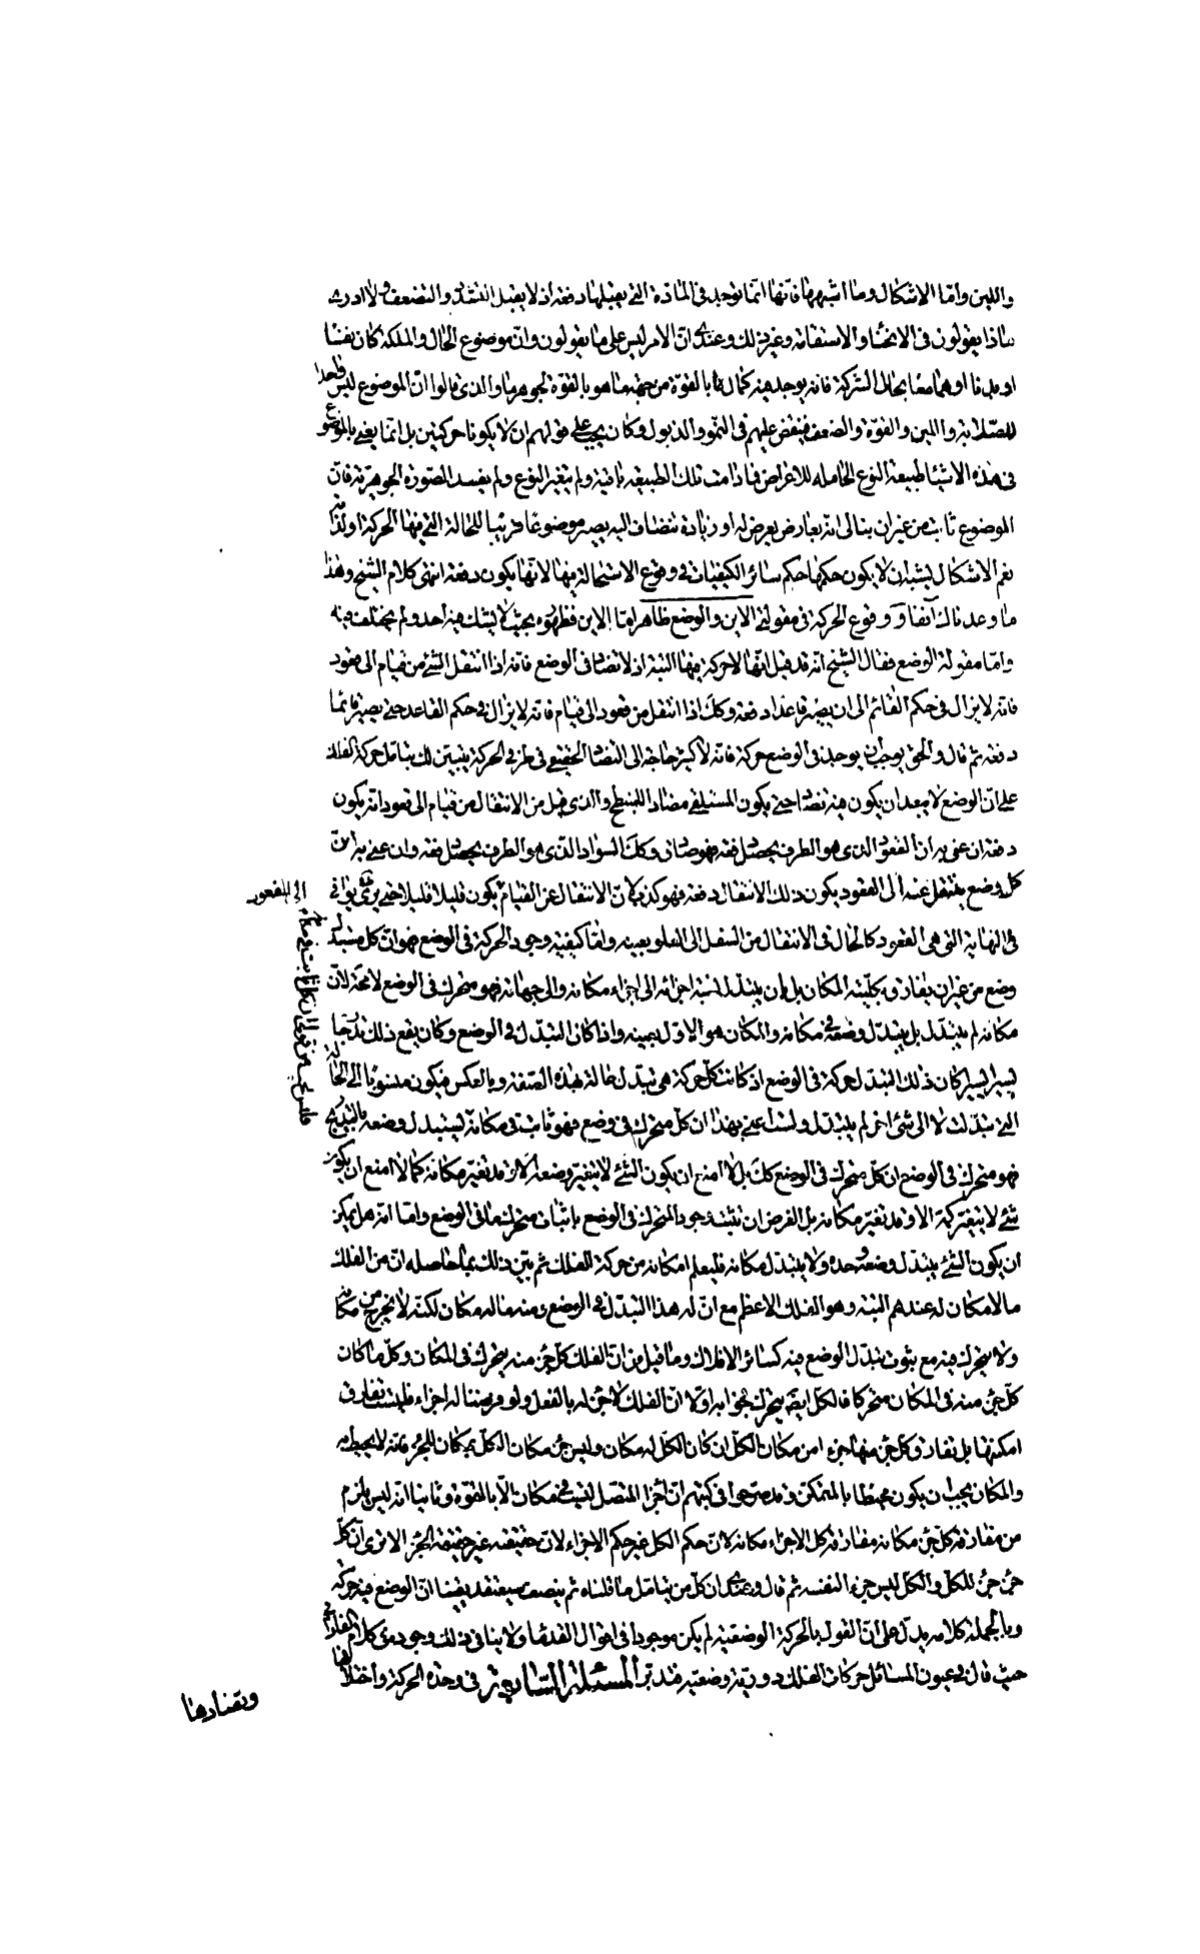 واللين وامّا الاشكال وما اشبهها فانّها انما توجد فى المادّة التى يقبلها دفعة اذ لا يقبل التشدّد والتضعف ولا ادرى
ماذا يقولون فى الانحناء والاستقامة وغير ذلك وعندى انّ الامر ليس على ما يقولون وانّ موضوع الحال والملكة كان نفسا
او بدنا او هما معا بحال الشركة فانه يوجد فيه كمال ما بالقوّة من جهة ما هو بالقوّة لجوهر ما والذى قالوا انّ الموضوع ليس واحدا
للصّلابة واللين والقوّة والضعف فينقض عليهم فى النموّ والذبول وكان يجب على قولهم ان لا يكونا حركتين بل انّما يعنى بالموضوع
فى هذه الاشياء طبيعة النوع الحاملة للاعراض فما دامت تلك الطبيعة باقية ولم يتغير النوع ولم يفسد الصّورة الجوهرية فانّ
الموضوع ثابت من غير ان يبالى انّه بعارض يعرض له او زيادة تنضاف اليه يصير موضوعا قريبا للحالة التى فيها الحركة او لذاته
نعم الاشكال يشبه ان لا يكون حكمها حكم سائر الكيفيات فى وقوع الاستحالة فيها لانّها يكون دفعة انتهى كلام الشيخ وهذا
ما وعدناك آنفا و وقوع الحركة فى مقولتى الاين والوضع ظاهر امّا الاين فظهوره بحيث لا يشك فيه احد ولم يختلف فيه
وامّا مقولة الوضع فقال الشيخ انّه قد قيل انّها لا حركة فيها البتة اذ لا تضاد فى الوضع فانه اذا انتقل الشئ من قيام الى قعود
فانّه لا يزال فى حكم القائم الى ان يصير قاعدا دفعة وكك اذا انتقل من قعود الى قيام فانّه لا يزال فى حكم القاعد حتى يصير قائما
دفعة ثم قال والحق يوجب ان يوجد فى الوضع حركة فانّه لا كبير حاجة الى التضاد الحقيقى فى طرفى الحركة يتبيّن لك بتامّل حركة الفلك
على انّ الوضع لا يبعد ان يكون فيه تضاد حتى يكون المستلقى مضادا للمنبطح والذى قيل من الانتقال من قيام الى قعود انّه يكون
دفعة ان عنى به ان القعود الذى هو الطرف يحصل دفعة فهو صادق وكك السواد الذى هو الطرف يحصل دفعة وان عنى به انّ
كل وضع ينتقل عنه الى القعود يكون ذلك الانتقال دفعة فهو كذب لانّ الانتقال عن القيام يكون قليلا قليلا حتى يوافى
فى النهاية التى هى القعود كالحال فى الانتقال من السفل الى العلو بعينه وامّا كيفية وجود الحركة فى الوضع فهو انّ كل مستبدل
وضع من غير ان يفارق بكلّيته المكان بل بان يتبدّل نسبة اجزائه الى اجزاء مكانه والى جهاته فهو متحرك فى الوضع لا محة لانّ
مكانه لم يتبدّل بل يتبدّل وضعه فى مكانه والمكان هو الاوّل بعينه واذا كان التبدّل فى الوضع وكان يقع ذلك تدرّجا
يسيرا يسيرا كان ذلك التبدّل حركة فى الوضع اذ كانت كلّ حركة هى تبدّل حالة بهذه الصّفة وبالعكس فيكون منسوبا الى الحالة
التى تبدّلت لا الى شئ اخر لم يتبدّل ولست اعنى بهذا ان كلّ متحرك فى وضع فهو ثابت فى مكانه ليتبدل وضعه بالتدريج
فهو متحرك فى الوضع ان كلّ متحرك فى الوضع كك بل لا امنع ان يكون الشئ لا يتغير وضعه الا وقد تغير مكانه كما لا امنع ان يكون
شئ لا يتغير كمّه الا وقد تغيّر مكانه بل الغرض ان نثبت وجود المتحرك فى الوضع باثبات متحرك ما فى الوضع وامّا انّه هل يمكن
ان يكون الشئ يتبدّل وضعه وحده ولا يتبدّل مكانه فليعلم امكانه من حركة الفلك ثم بيّن ذلك بما حاصله انّ من الفلك
ما لا مكان له عندهم البتة وهو الفلك الاعظم مع انّ له هذا التبدّل فى الوضع ومنه ما له مكان لكنّه لا يخرج من مكانه
ولا يتحرك فيه مع ثبوت تبدّل الوضع فيه كسائر الافلاك وما قيل من انّ الفلك كلّ جزء منه يتحرك فى المكان وكلّ ما كان
كلّ جزء منه فى المكان متحركا فالكلّ ايضا يتحرك فجوابه اوّلا انّ الفلك لا جزء له بالفعل ولو فرضنا له اجزاء فليست تفارق
امكنتها بل تفارق كلّ جزء منها جزءا من مكان الكلّ ان كان الكلّ له مكان وليس جزء مكان الكلّ بمكان للجزء فانه لا يحيط به
والمكان يجب ان يكون محيطا بالمتمكن وقد صرحوا فى كتبهم انّ اجزاء المتصل ليست فى مكان الّا بالقوّة وثانيا انّه ليس يلزم
من مفارقة كلّ جزء مكانه مفارقة كل الاجزاء مكانه لانّ حكم الكل غير حكم الاجزاء لانّ حقيقته غير حقيقة الجزء الا ترى انّ كلّ
جزء جزء للكلّ والكلّ ليس جزءا لنفسه ثم قال وعندى ان كل من يتامّل ما قلناه ثم ينصف سيعتقد يقينا انّ الوضع فيه حركة
وبالجملة كلامه يدلّ على انّ القول بالحركة الوضعية لم يكن موجودا فى اقوال القدماء ولا ينافى ذلك وجوده فى كلام الفارابى
حيث قال فى عيون المسائل حركات الفلك دورية وضعيّة فتدبر المسئلة السّابعة فى وحدة الحركة واختلافها
وتضادها